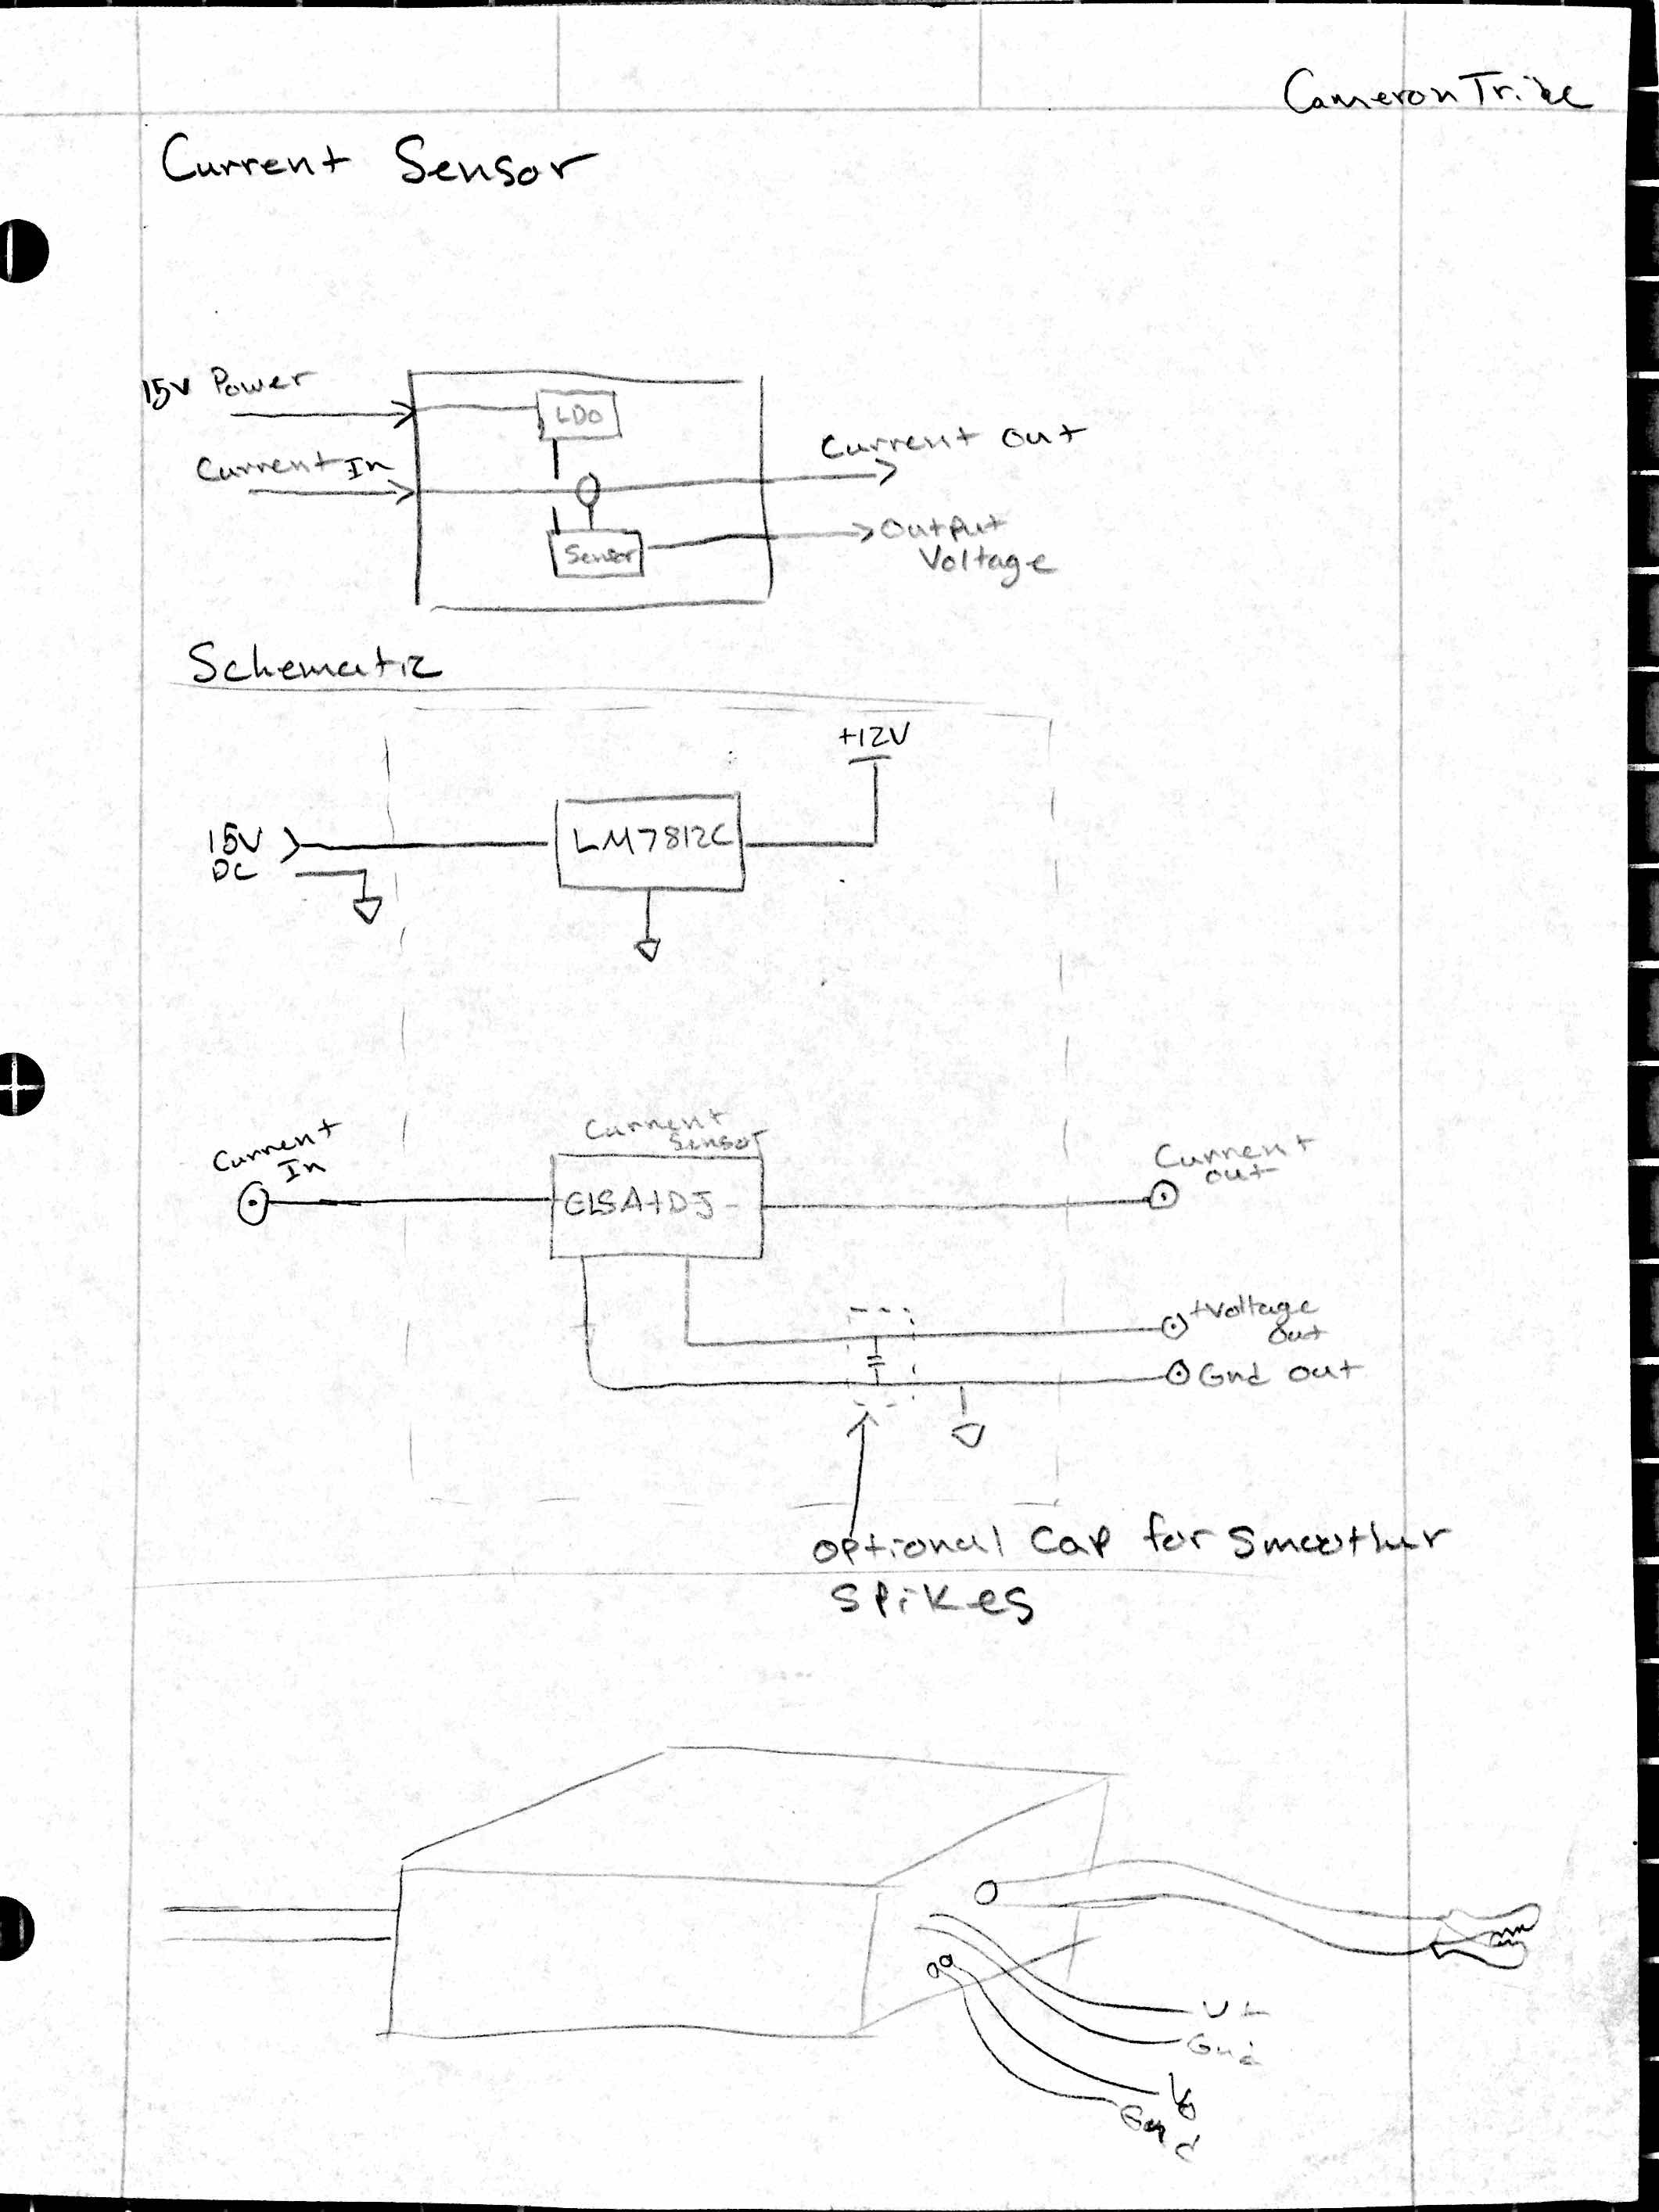 Cameron
Current Sensor
15V Power
LDO
Current In
Current Out
Sensor
Output
Voltage
Schematic
+12V
15V
DC
LM7812C
Current
In
Current
Sensor
Current
out
+Voltage
Out
Gnd Out
optional Cap for Smoother
Spikes
V+
Gnd
Gnd